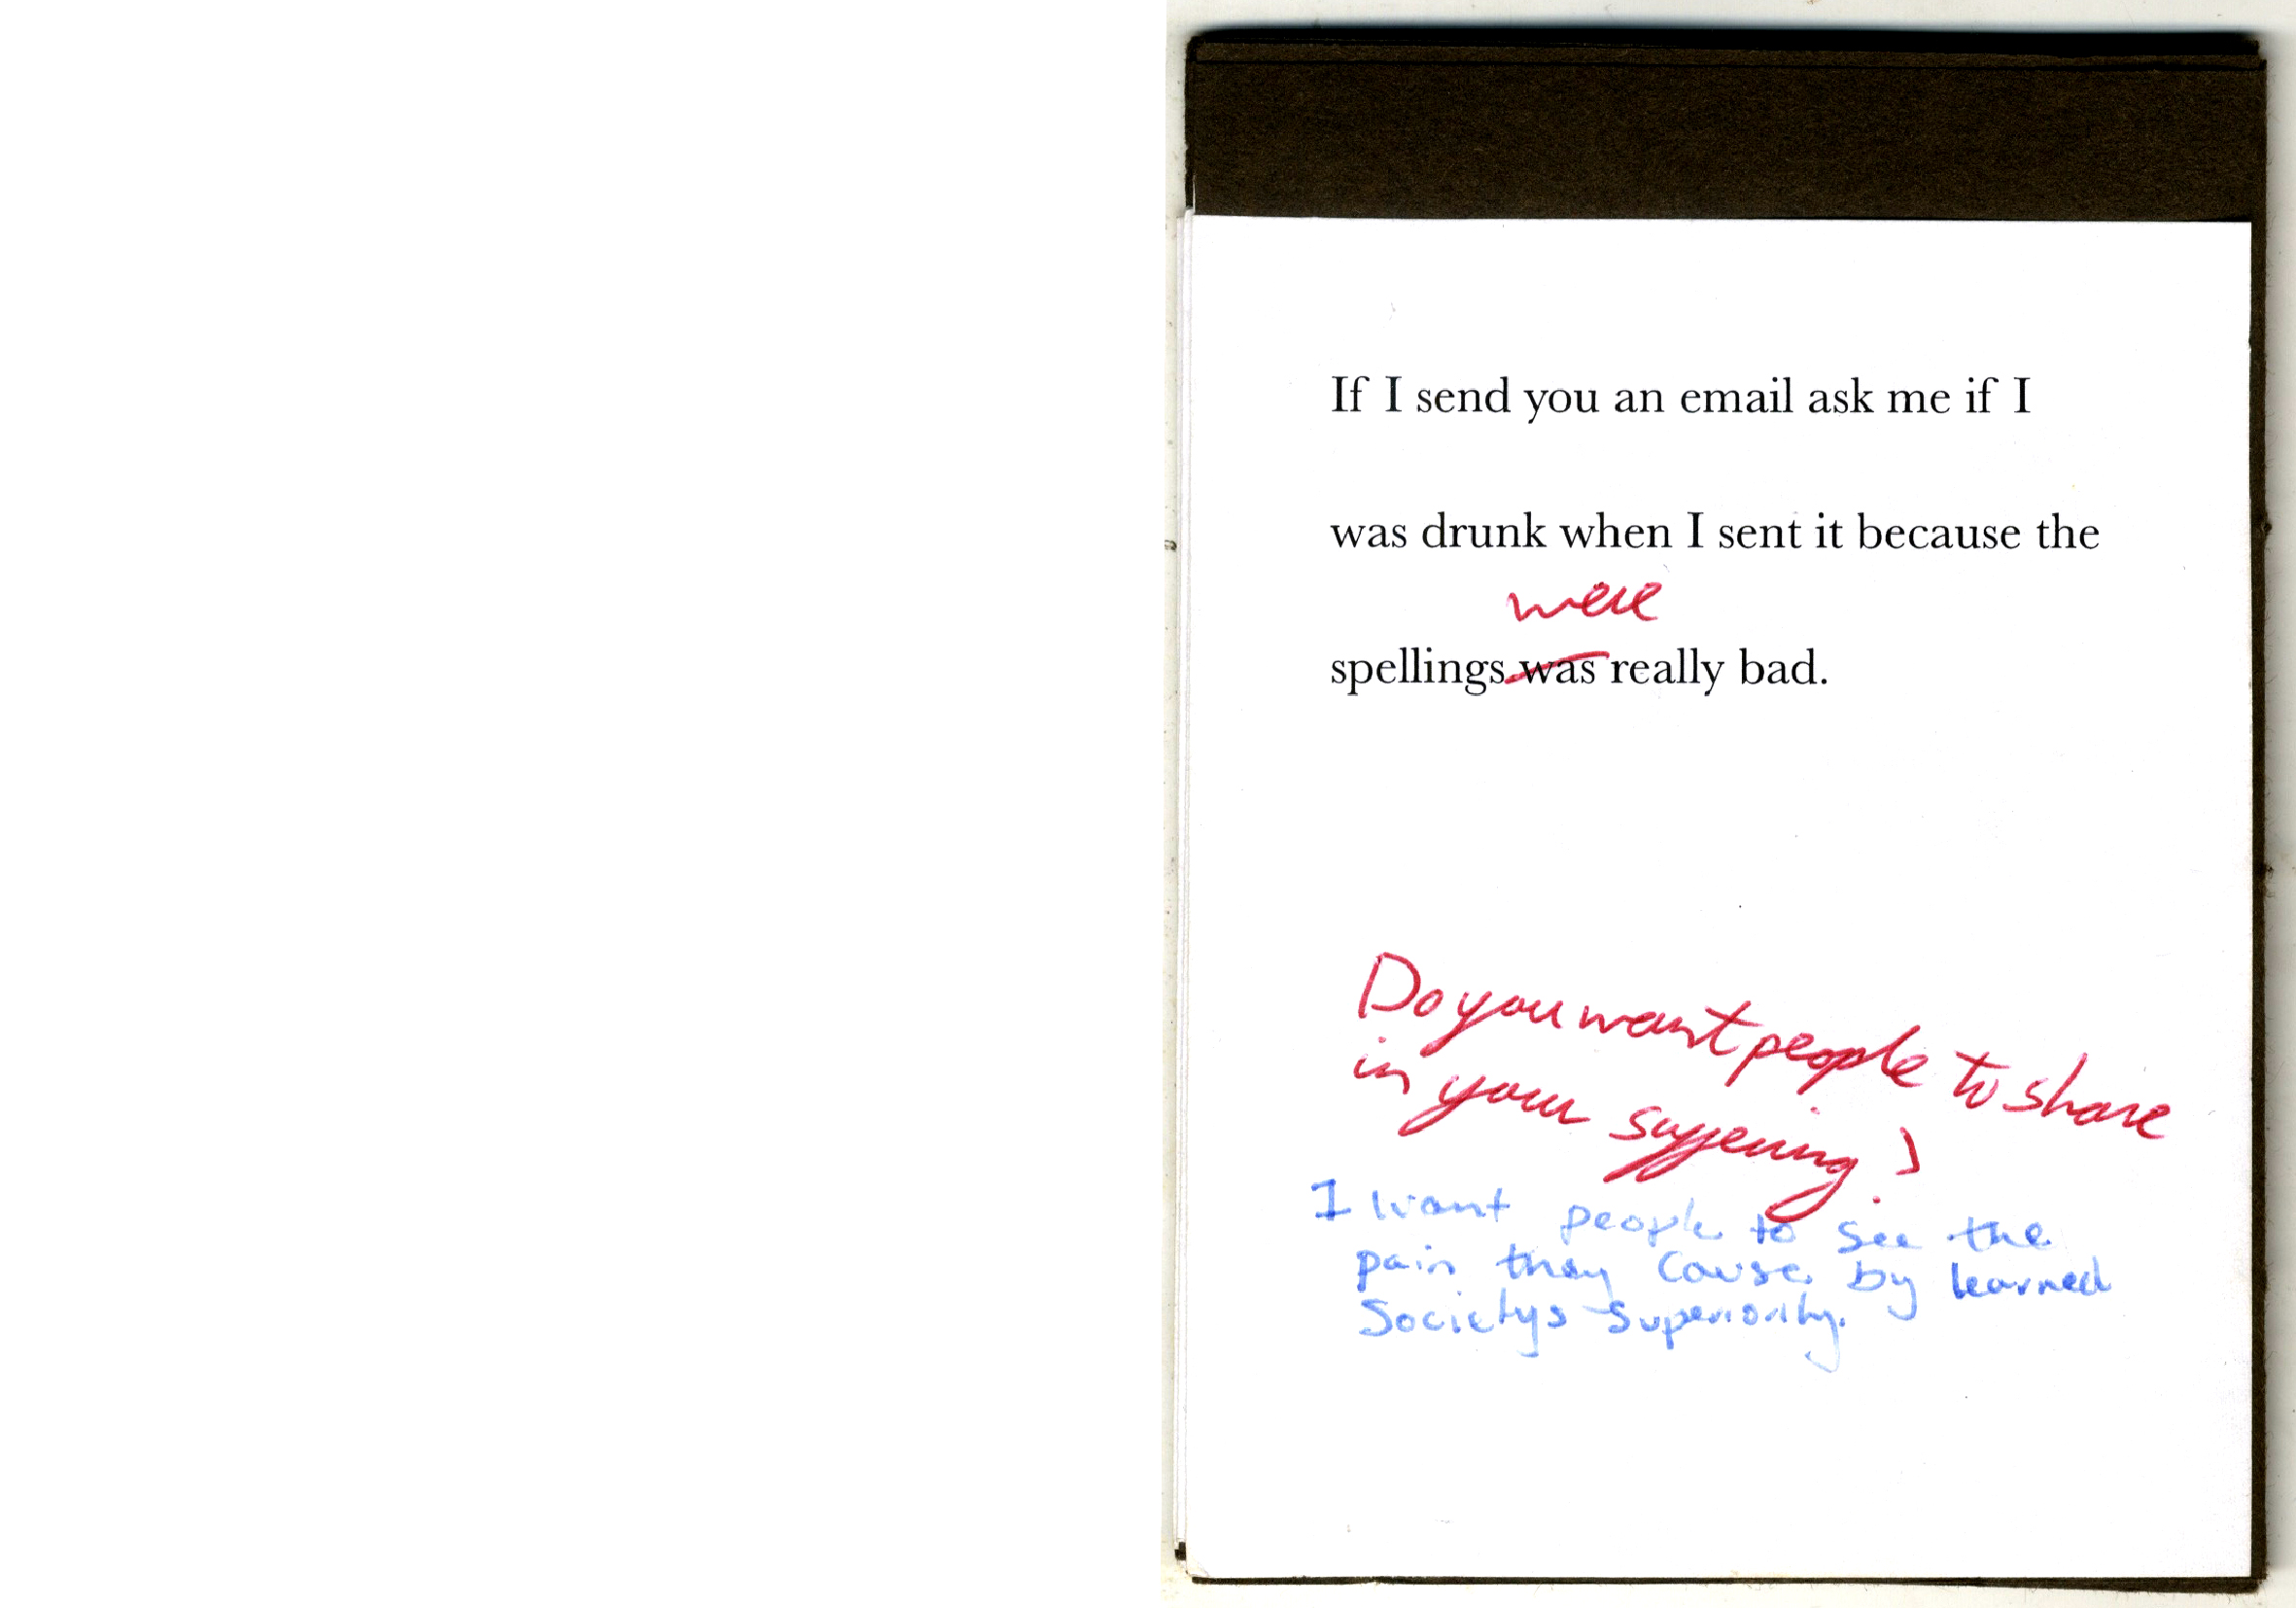 If I send you an email ask me if I
was drunk when I sent it because the
were
spellings was really bad.
Do you want people to share
in your suffering?
I want people to see the
pain they cause by learned
Societys superiority.